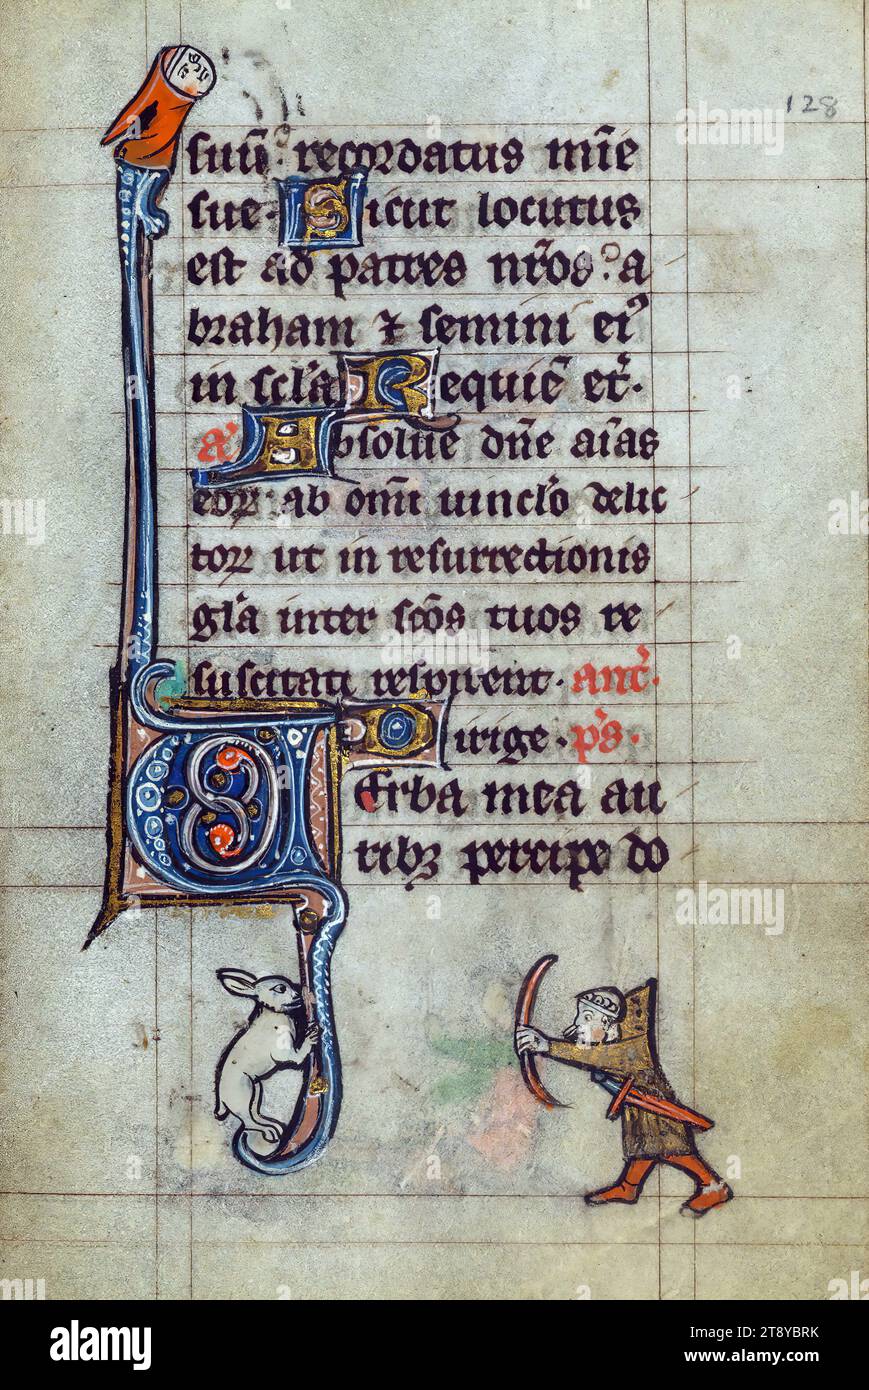 128
suū. recordatus mīe
sue. Sicut locutus
est ad patres nr̄os. a
braham ⁊ semini eiꝰ
in scl̄a Requiē et̄.
a' Absolue dn̄e aīas
eoꝝ ab om̄i uincl̄o delic
toꝝ ut in resurrectionis
gl̄a inter sc̄os tuos re
suscitati respirent. ant̄.
Dirige. p̄s.
Uerba mea au
ribꝫ percipe do
alamy
Image ID: 2T8YBRK
www.alamy.com